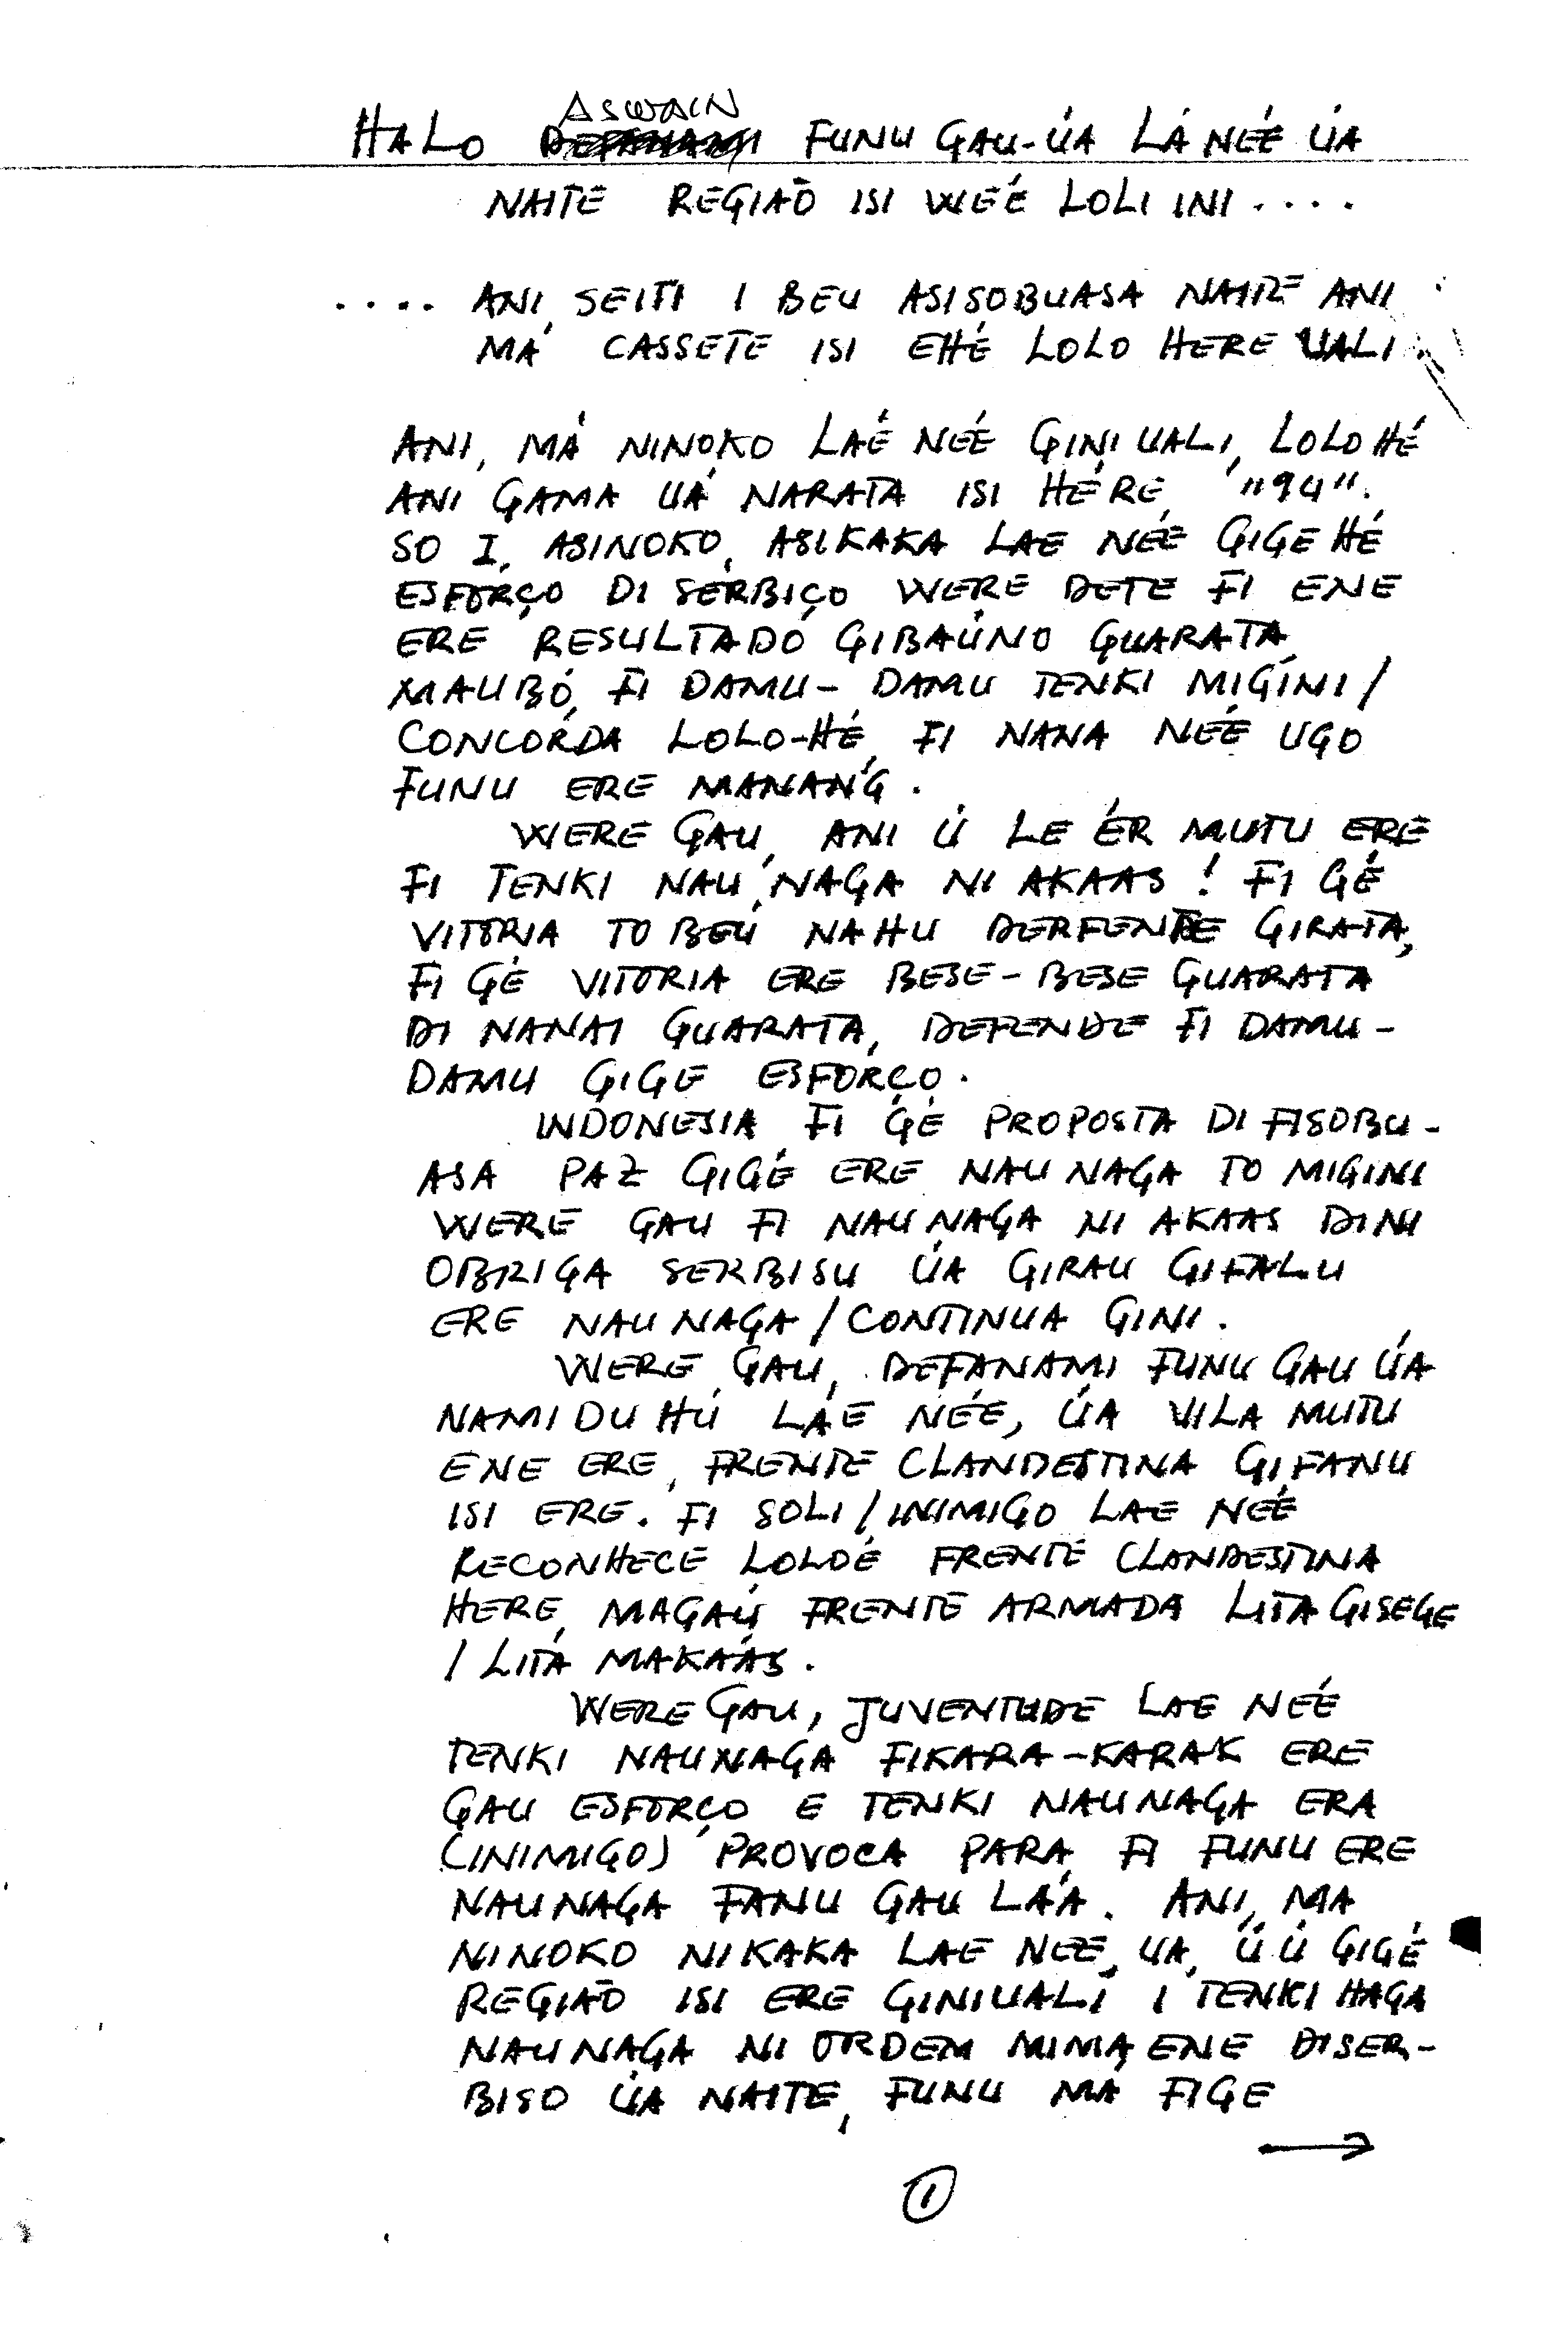 HALO ASWAIN FUNU GAU-ÚA LÁ NÉÉ ÚA
NAITE REGIAÕ ISI WÉÉ LOLI INI ....
.... ANI, SEITI I BEU ASISOBUASA NAITE ANI
MÁ CASSETE ISI EHÉ LOLO HERE UALI.
ANI, MÁ NINOKO LAÉ NÉÉ GINI UALI, LOLO HÉ
ANI GAMA UÁ NARATA ISI HÉRE, "94".
SO I, ASINOKO, ASIKAKA LAE NÉÉ GIGE HÉ
ESFORÇO DI SERBIÇO WERE DETE FI ENE
ERE RESULTADO GIBAÚNO GUARATA
MAUBÓ, FI DAMU-DAMU TENKI MIGINI/
CONCORDA LOLO-HÉ, FI NANA NÉÉ UGO
FUNU ERE MANANG.
WERE GAU, ANI Ú LE ÉR MUTU ERE
FI TENKI NAU NAGA NI AKAAS! FI GÉ
VITORIA TO BEÚ NAHU DERFENDE GIRATA,
FI GÉ VITORIA ERE BESE-BESE GUARATA
DI NANAI GUARATA, DEFENDE FI DAMU-
DAMU GIGE ESFORÇO.
INDONESIA FI GÉ PROPOSTA DI FISOBU-
ASA PAZ GIGÉ ERE NAU NAGA TO MIGINI
WERE GAU FI NAU NAGA NI AKAAS DINI
OBRIGA SERBISU ÚA GIRAU GIFALU
ERE NAU NAGA/CONTINUA GINI.
WERE GAU, DEFANAMI FUNU GAU ÚA
NAMI DU HÚ LÁE NÉE, ÚA VILA MUTU
ENE ERE, FRENTE CLANDESTINA GIFANU
ISI ERE. FI SOLI/INIMIGO LAE NÉÉ
RECONHECE LOLOÉ FRENTE CLANDESTINA
HERE, MAGAÚ FRENTE ARMADA LITA GISEGE
/LITÁ MAKAÁS.
WERE GAU, JUVENTUDE LAE NÉÉ
TENKI NAUNAGA FIKARA-KARAK ERE
GAU ESFORÇO E TENKI NAUNAGA ERA
(INIMIGO) PROVOCA PARA FI FUNU ERE
NAUNAGA FANU GAU LÁ'A. ANI, MA
NINOKO NIKAKA LAE NEE, UA, Ú Ú GIGÉ
REGIAÕ ISI ERE GINIUALI I TENKI HAGA
NAUNAGA NI ORDEM MIMA ENE DISER-
BISO ÚA NAITE, FUNU MÁ FIGE
→
1